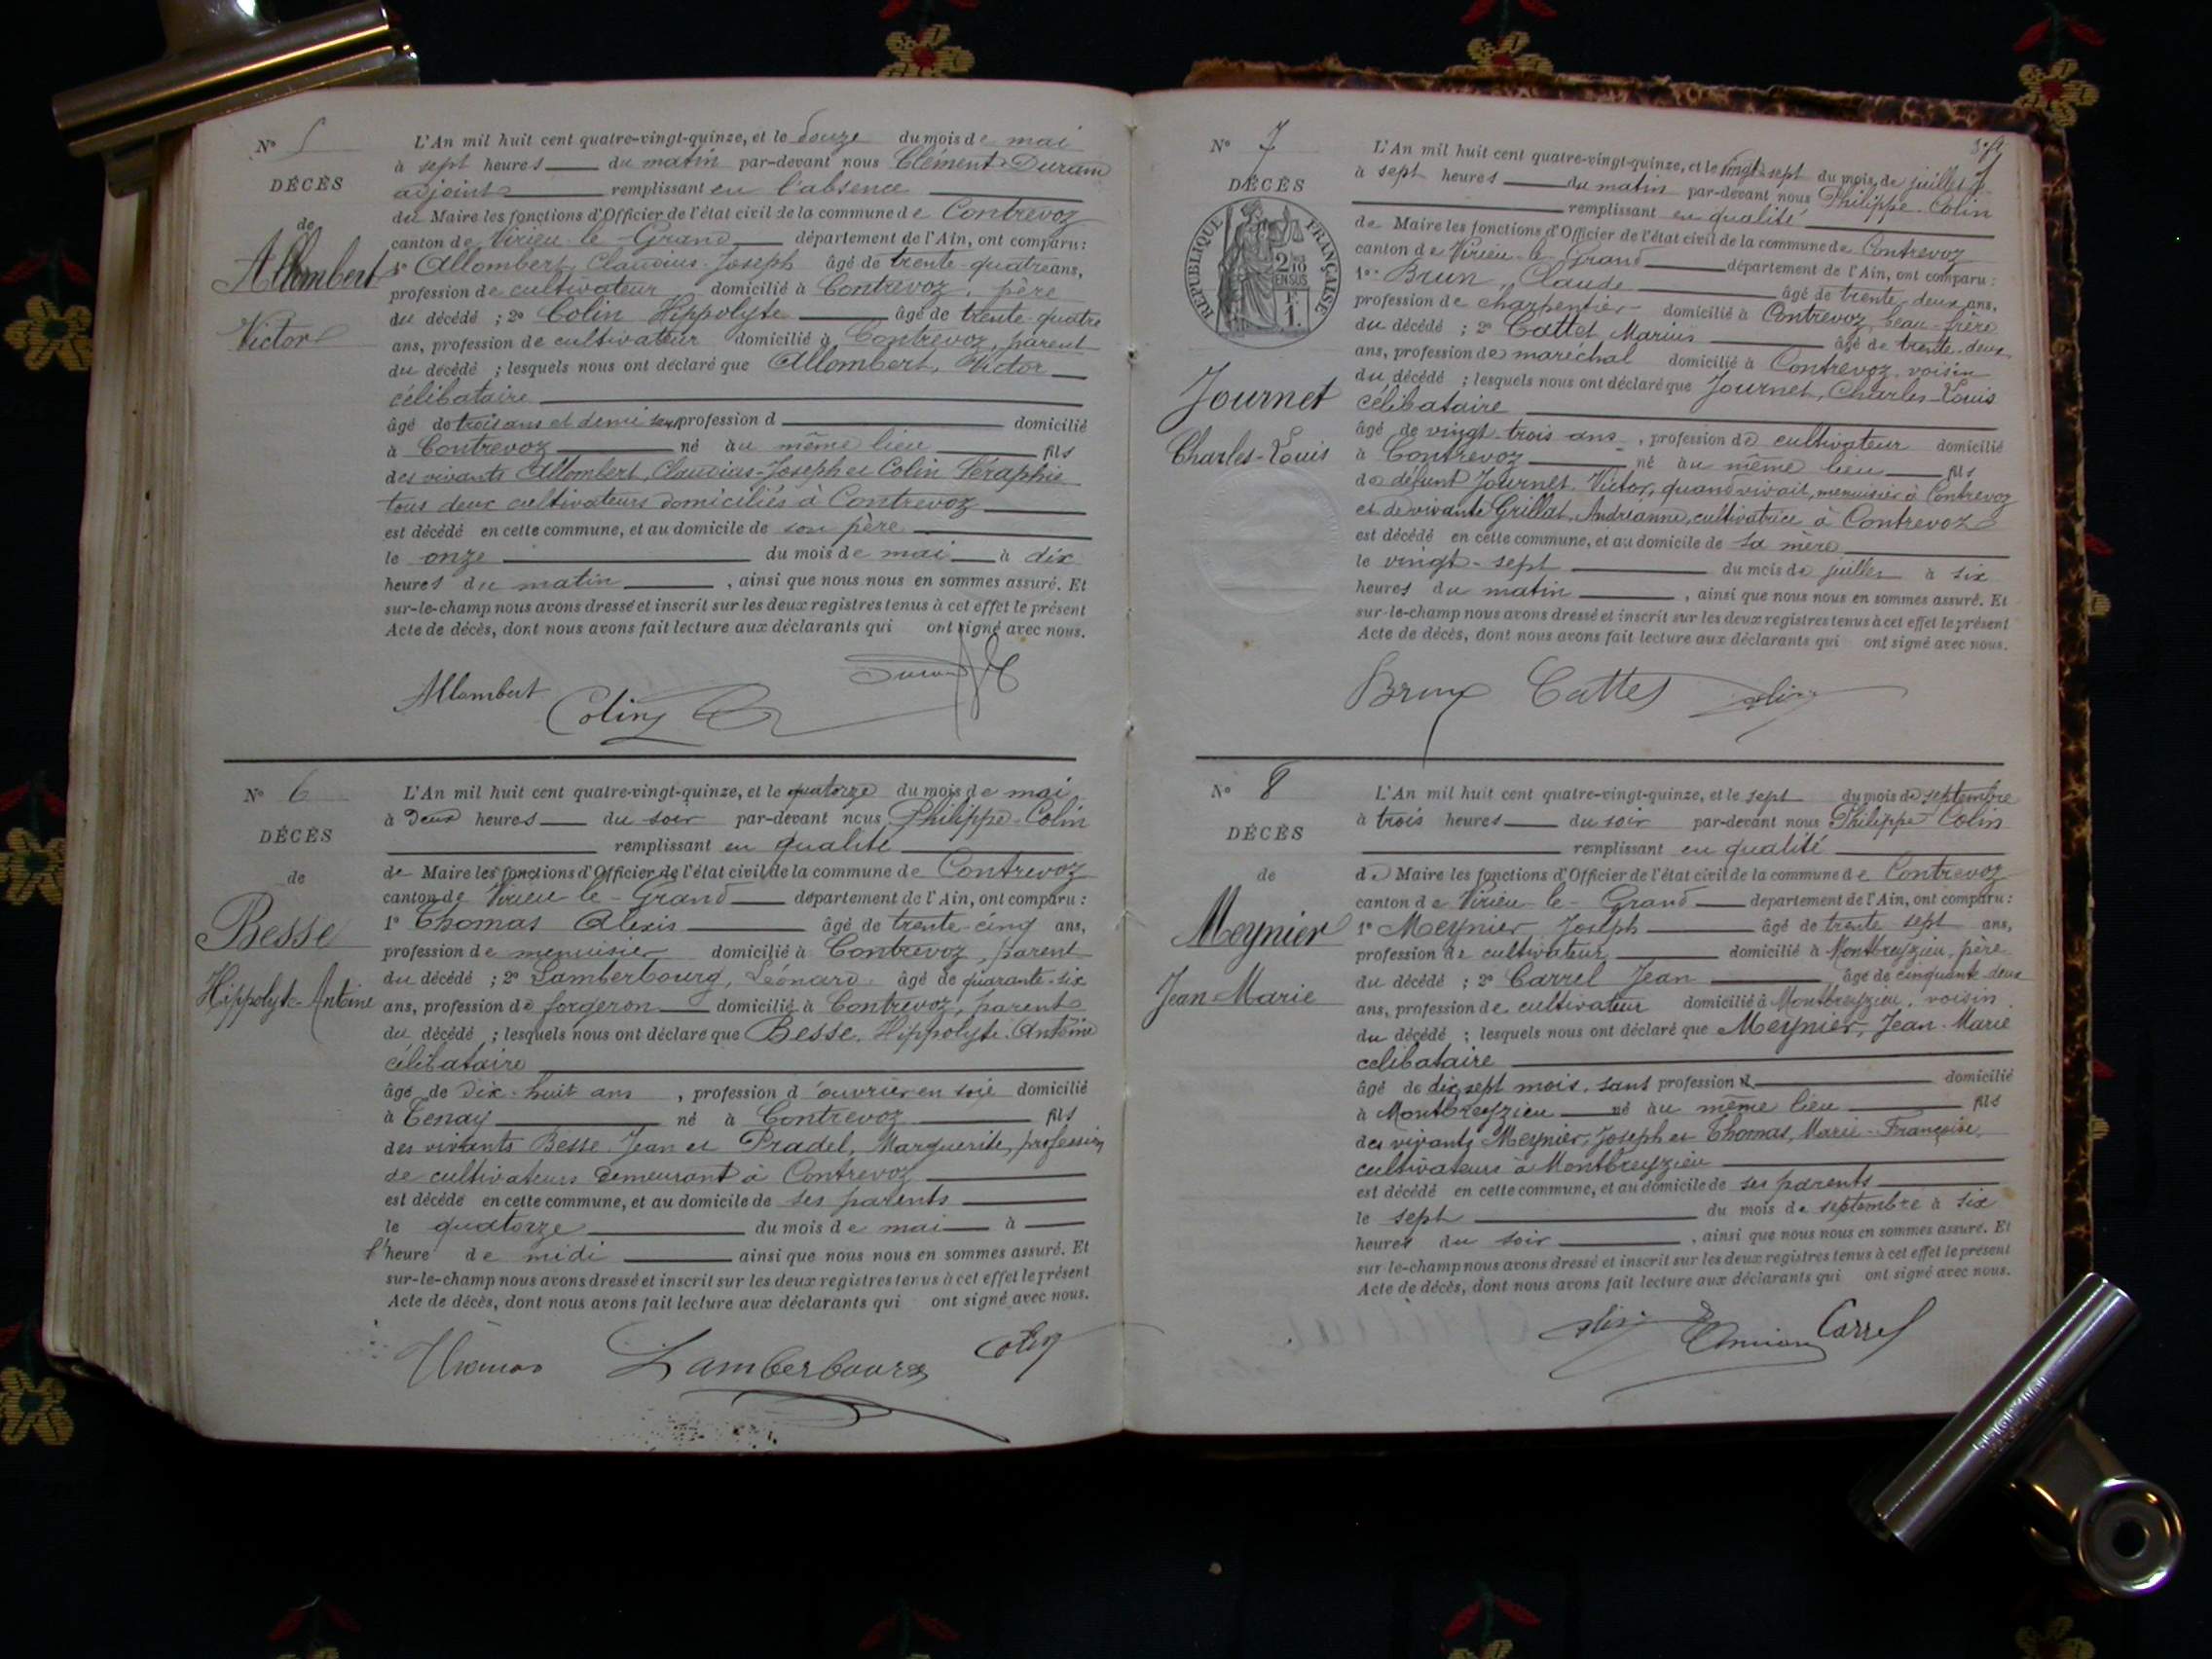 N° 5
DÉCÈS
de
Allombert
Victor
L'An mil huit cent quatre-vingt-quinze, et le douze du mois de mai
à sept heures du matin par-devant nous Clément Durand
adjoint remplissant en l'absence
du Maire les fonctions d'Officier de l'état civil de la commune de Contrevoz
canton de Virieu-le-Grand département de l'Ain, ont comparu :
1° Allombert, Claudius-Joseph âgé de trente-quatre ans,
profession de cultivateur domicilié à Contrevoz, père
du décédé ; 2° Colin Hippolyte âgé de trente-quatre
ans, profession de cultivateur domicilié à Contrevoz, parent
du décédé ; lesquels nous ont déclaré que Allombert, Victor
célibataire
âgé de trois ans et demi sans profession d domicilié
à Contrevoz né au même lieu fils
des vivants Allombert, Claudius-Joseph et Colin Séraphie
tous deux cultivateurs domiciliés à Contrevoz
est décédé en cette commune, et au domicile de son père
le onze du mois de mai à dix
heures du matin , ainsi que nous nous en sommes assuré. Et
sur-le-champ nous avons dressé et inscrit sur les deux registres tenus à cet effet le présent
Acte de décès, dont nous avons fait lecture aux déclarants qui ont signé avec nous.
Allombert Colin Durand
N° 6
DÉCÈS
de
Besse
Hippolyte-Antoine
L'An mil huit cent quatre-vingt-quinze, et le quatorze du mois de mai
à deux heures du soir par-devant nous Philippe Colin
remplissant en qualité
de Maire les fonctions d'Officier de l'état civil de la commune de Contrevoz
canton de Virieu le-Grand département de l'Ain, ont comparu :
1° Thomas Alexis âgé de trente-cinq ans,
profession de menuisier domicilié à Contrevoz, parent
du décédé ; 2° Lamberbourg, Léonard âgé de quarante-six
ans, profession de forgeron domicilié à Contrevoz, parent
du décédé ; lesquels nous ont déclaré que Besse, Hippolyte-Antoine
célibataire
âgé de dix-huit ans , profession d'ouvrier en soie domicilié
à Tenay né à Contrevoz fils
des vivants Besse Jean et Pradel, Marguerite, profession
de cultivateurs demeurant à Contrevoz
est décédé en cette commune, et au domicile de ses parents
le quatorze du mois de mai à
l'heure de midi ainsi que nous nous en sommes assuré. Et
sur-le-champ nous avons dressé et inscrit sur les deux registres tenus à cet effet le présent
Acte de décès, dont nous avons fait lecture aux déclarants qui ont signé avec nous.
Thomas Lamberbourg Colin
N° 7
DÉCÈS
RÉPUBLIQUE FRANÇAISE
2/10 EN SUS
1F.
Journet
Charles-Louis
L'An mil huit cent quatre-vingt-quinze, et le vingt-sept du mois de juillet
à sept heures du matin par-devant nous Philippe Colin
remplissant en qualité
de Maire les fonctions d'Officier de l'état civil de la commune de Contrevoz
canton de Virieu-le-Grand département de l'Ain, ont comparu :
1° Brun, Claude âgé de trente-deux ans,
profession de charpentier domicilié à Contrevoz, beau-frère
du décédé ; 2° Cattet Marius âgé de trente-deux
ans, profession de maréchal domicilié à Contrevoz, voisin
du décédé ; lesquels nous ont déclaré que Journet, Charles-Louis
célibataire
âgé de vingt-trois ans , profession de cultivateur domicilié
à Contrevoz né au même lieu fils
de défunt Journet Victor, quand vivait, menuisier à Contrevoz
et de vivante Grillat, Andréanne, cultivatrice à Contrevoz
est décédé en cette commune, et au domicile de sa mère
le vingt-sept du mois de juillet à six
heures du matin , ainsi que nous nous en sommes assuré. Et
sur-le-champ nous avons dressé et inscrit sur les deux registres tenus à cet effet le présent
Acte de décès, dont nous avons fait lecture aux déclarants qui ont signé avec nous.
Brun Cattet Colin
N° 8
DÉCÈS
de
Meynier
Jean-Marie
L'An mil huit cent quatre-vingt-quinze, et le sept du mois de septembre
à trois heures du soir par-devant nous Philippe Colin
remplissant en qualité
de Maire les fonctions d'Officier de l'état civil de la commune de Contrevoz
canton de Virieu-le-Grand département de l'Ain, ont comparu :
1° Meynier Joseph âgé de trente sept ans,
profession de cultivateur domicilié à Montbreyzieu, père
du décédé ; 2° Carrel Jean âgé de cinquante-deux
ans, profession de cultivateur domicilié à Montbreyzieu, voisin
du décédé ; lesquels nous ont déclaré que Meynier, Jean-Marie
célibataire
âgé de dix sept mois, sans profession d domicilié
à Montbreyzieu né au même lieu fils
des vivants Meynier, Joseph et Thomas, Marie-Françoise,
cultivateurs à Montbreyzieu
est décédé en cette commune, et au domicile de ses parents
le sept du mois de septembre à six
heures du soir , ainsi que nous nous en sommes assuré. Et
sur-le-champ nous avons dressé et inscrit sur les deux registres tenus à cet effet le présent
Acte de décès, dont nous avons fait lecture aux déclarants qui ont signé avec nous.
Colin Carrel